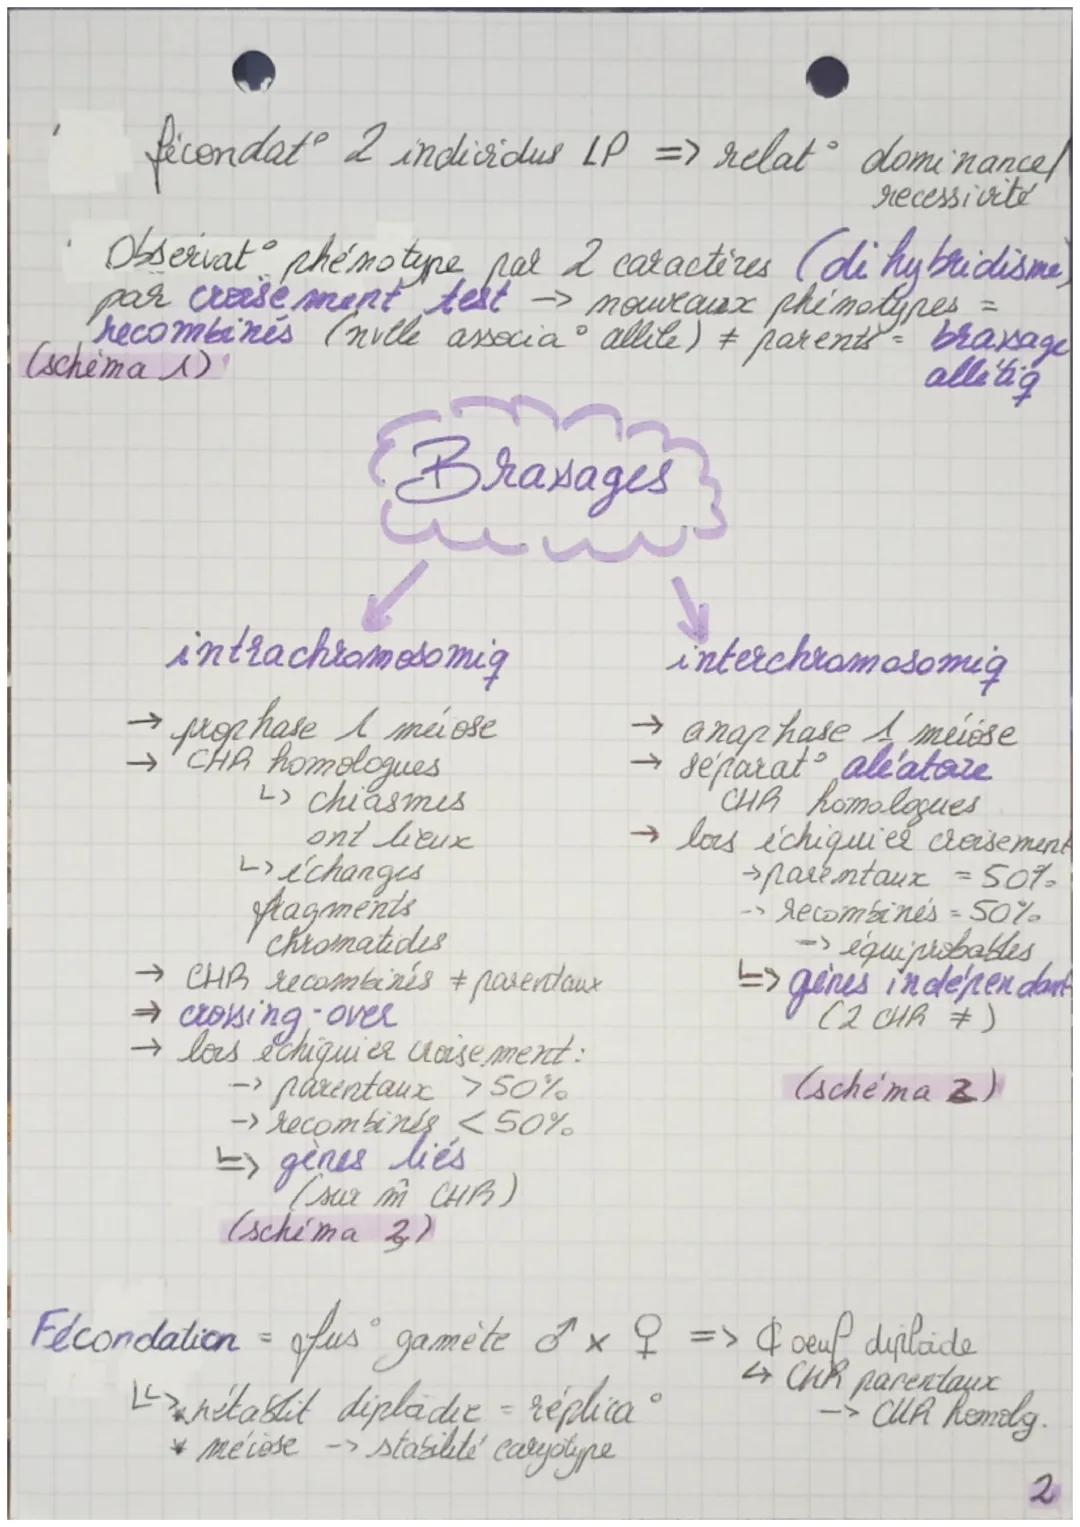 fécondat° 2 individus LP => relat° dominance/
recessivité
Observat° phénotype par 2 caractères (dihybridisme)
par croisement test -> nouveaux phénotypes =
recombinés (nvlle associa° allèle) ≠ parents = brassage
(schéma 1) allélìq
Brassages
intrachromosomiq
→ prophase 1 méiose
→ CHR homologues
↳ chiasmes
ont lieux
↳ échanges
fragments
chromatides
→ CHR recombinés ≠ parentaux
→ crossing-over
→ lors échiquier croisement :
-> parentaux > 50%
-> recombinés < 50%
↳> gènes liés
(sur m̂ CHR)
(schéma 2)
interchromosomiq
→ anaphase 1 méiose
→ séparat° aléatoire
CHR homologues
→ lors échiquier croisement
-> parentaux = 50%
-> recombinés = 50%
-> équiprobables
↳> gènes indépendant
(2 CHR ≠)
(schéma 3)
Fécondation = fus° gamète ♂ x ♀ => ¢ oeuf diploïde
↳ CHR parentaux
-> CHR homolg.
↳> * rétablit diploïdie = réplica°
* méiose -> stabilité caryotype
2